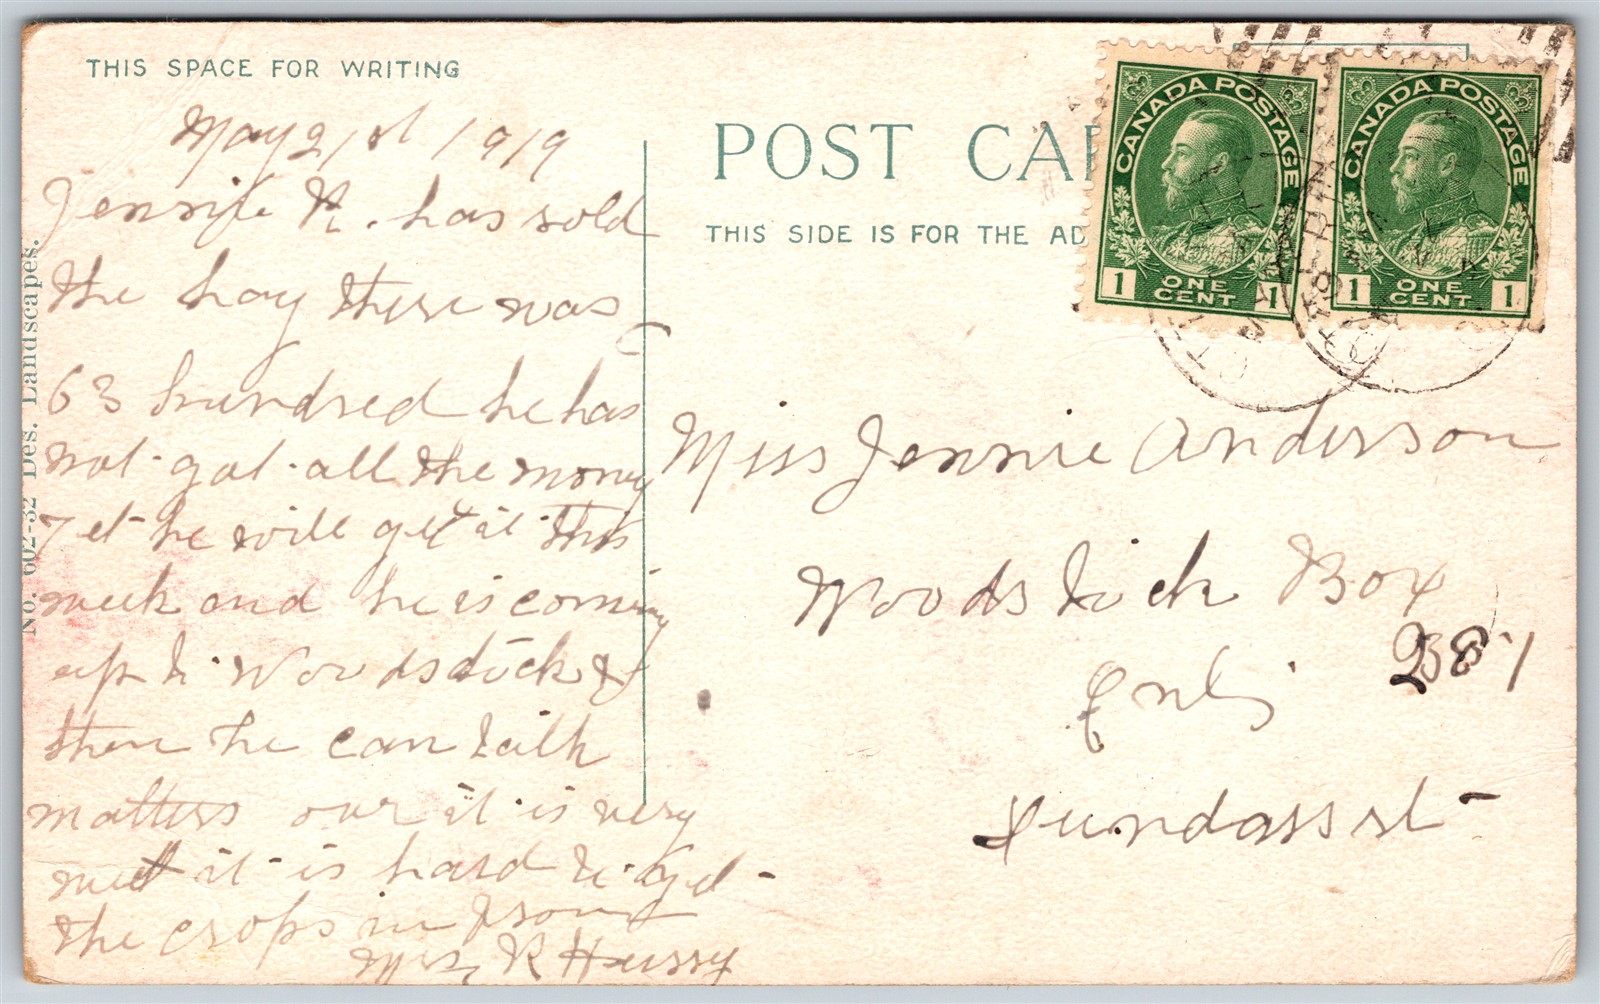 THIS SPACE FOR WRITING
May 21st 1919
Jennie R. has sold
the hay there was
63 hundred he has
not got all the money
yet he will get it this
week and he is coming
up to Woodstock &
then he can talk
matters over it is very
wett it is hard to get
the crops in
Mrs R Hussy
No. 602-32 Des. Landscapes.
POST CAR
THIS SIDE IS FOR THE AD
CANADA POSTAGE
1 ONE CENT 1
CANADA POSTAGE
1 ONE CENT 1
Miss Jennie Anderson
Woodstock Box
287
Ont
Dundass st